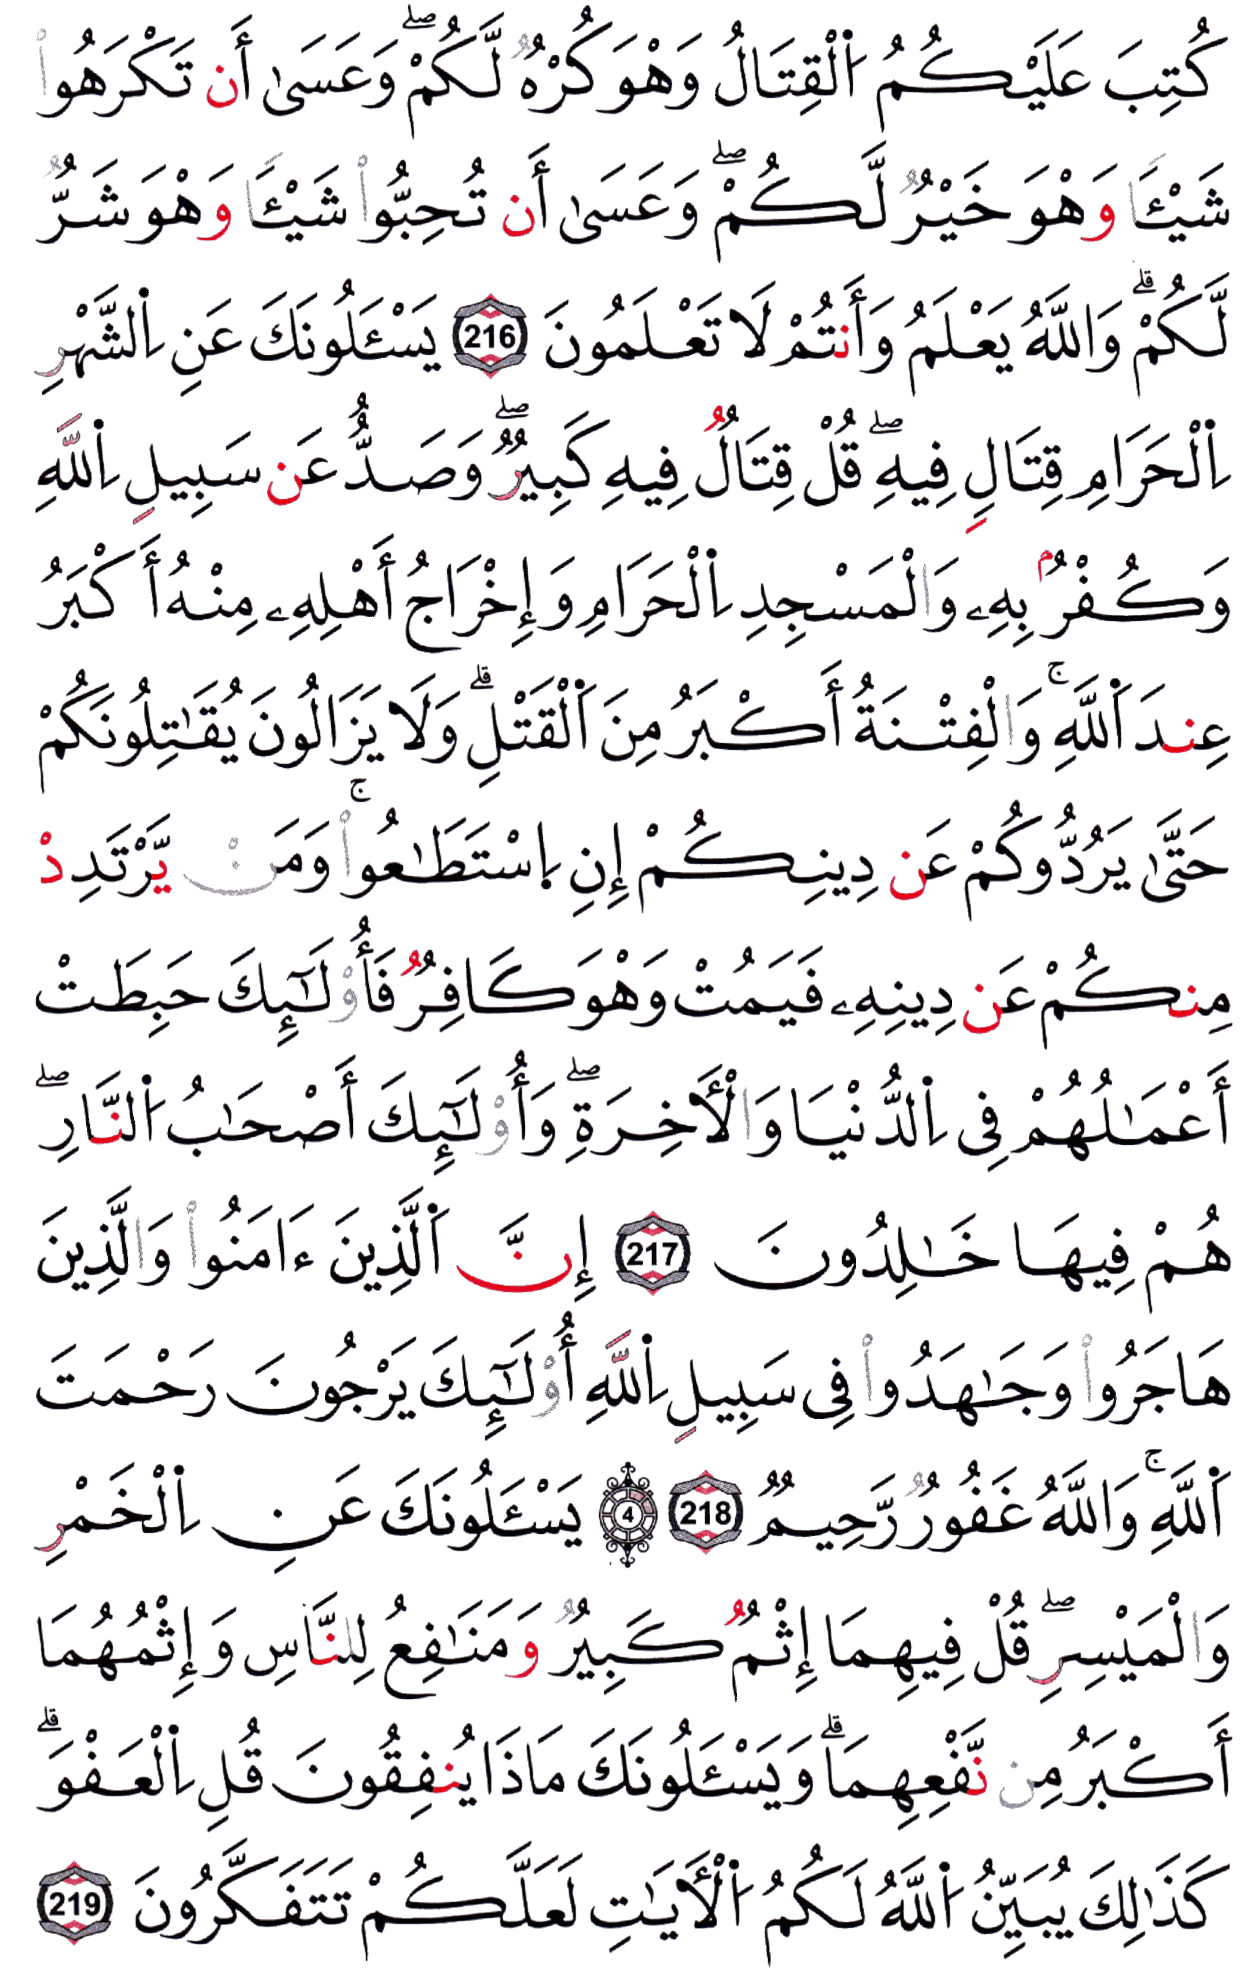 كُتِبَ عَلَيْكُمُ اُ۬لْقِتَالُ وَهْوَ كُرْهٞ لَّكُمْۖ وَعَسَىٰ أَن تَكْرَهُواْ
شَيْـٔاٗ وَهْوَ خَيْرٞ لَّكُمْۖ وَعَسَىٰ أَن تُحِبُّواْ شَيْـٔاٗ وَهْوَ شَرّٞ
لَّكُمْۗ وَاللَّهُ يَعْلَمُ وَأَنتُمْ لَا تَعْلَمُونَ 216 يَسْـَٔلُونَكَ عَنِ اِ۬لشَّهْرِ
اِ۬لْحَرَامِ قِتَالٖ فِيهِۖ قُلْ قِتَالٞ فِيهِ كَبِيرٞۖ وَصَدٌّ عَن سَبِيلِ اِ۬للَّهِ
وَكُفْرُۢ بِهِۦ وَالْمَسْجِدِ اِ۬لْحَرَامِ وَإِخْرَاجُ أَهْلِهِۦ مِنْهُ أَكْبَرُ
عِندَ اَ۬للَّهِۚ وَالْفِتْنَةُ أَكْبَرُ مِنَ اَ۬لْقَتْلِۗ وَلَا يَزَالُونَ يُقَٰتِلُونَكُمْ
حَتَّىٰ يَرُدُّوكُمْ عَن دِينِكُمْ إِنِ اِ۪سْتَطَٰعُواْۚ وَمَنْ يَّرْتَدِدْ
مِنكُمْ عَن دِينِهِۦ فَيَمُتْ وَهْوَ كَافِرٞ فَأُوْلَٰٓئِكَ حَبِطَتْ
أَعْمَٰلُهُمْ فِي اِ۬لدُّنْيَا وَالْأٓخِرَةِۖ وَأُوْلَٰٓئِكَ أَصْحَٰبُ اُ۬لنَّارِۖ
هُمْ فِيهَا خَٰلِدُونَ 217 إِنَّ اَ۬لَّذِينَ ءَامَنُواْ وَالَّذِينَ
هَاجَرُواْ وَجَٰهَدُواْ فِي سَبِيلِ اِ۬للَّهِ أُوْلَٰٓئِكَ يَرْجُونَ رَحْمَتَ
اَ۬للَّهِۚ وَاللَّهُ غَفُورٞ رَّحِيمٞ 218 4 يَسْـَٔلُونَكَ عَنِ اِ۬لْخَمْرِ
وَالْمَيْسِرِۖ قُلْ فِيهِمَا إِثْمٞ كَبِيرٞ وَمَنَٰفِعُ لِلنَّاسِ وَإِثْمُهُمَا
أَكْبَرُ مِن نَّفْعِهِمَاۗ وَيَسْـَٔلُونَكَ مَاذَا يُنفِقُونَ قُلِ اِ۬لْعَفْوَۗ
كَذَٰلِكَ يُبَيِّنُ اُ۬للَّهُ لَكُمُ اُ۬لْأٓيَٰتِ لَعَلَّكُمْ تَتَفَكَّرُونَ 219